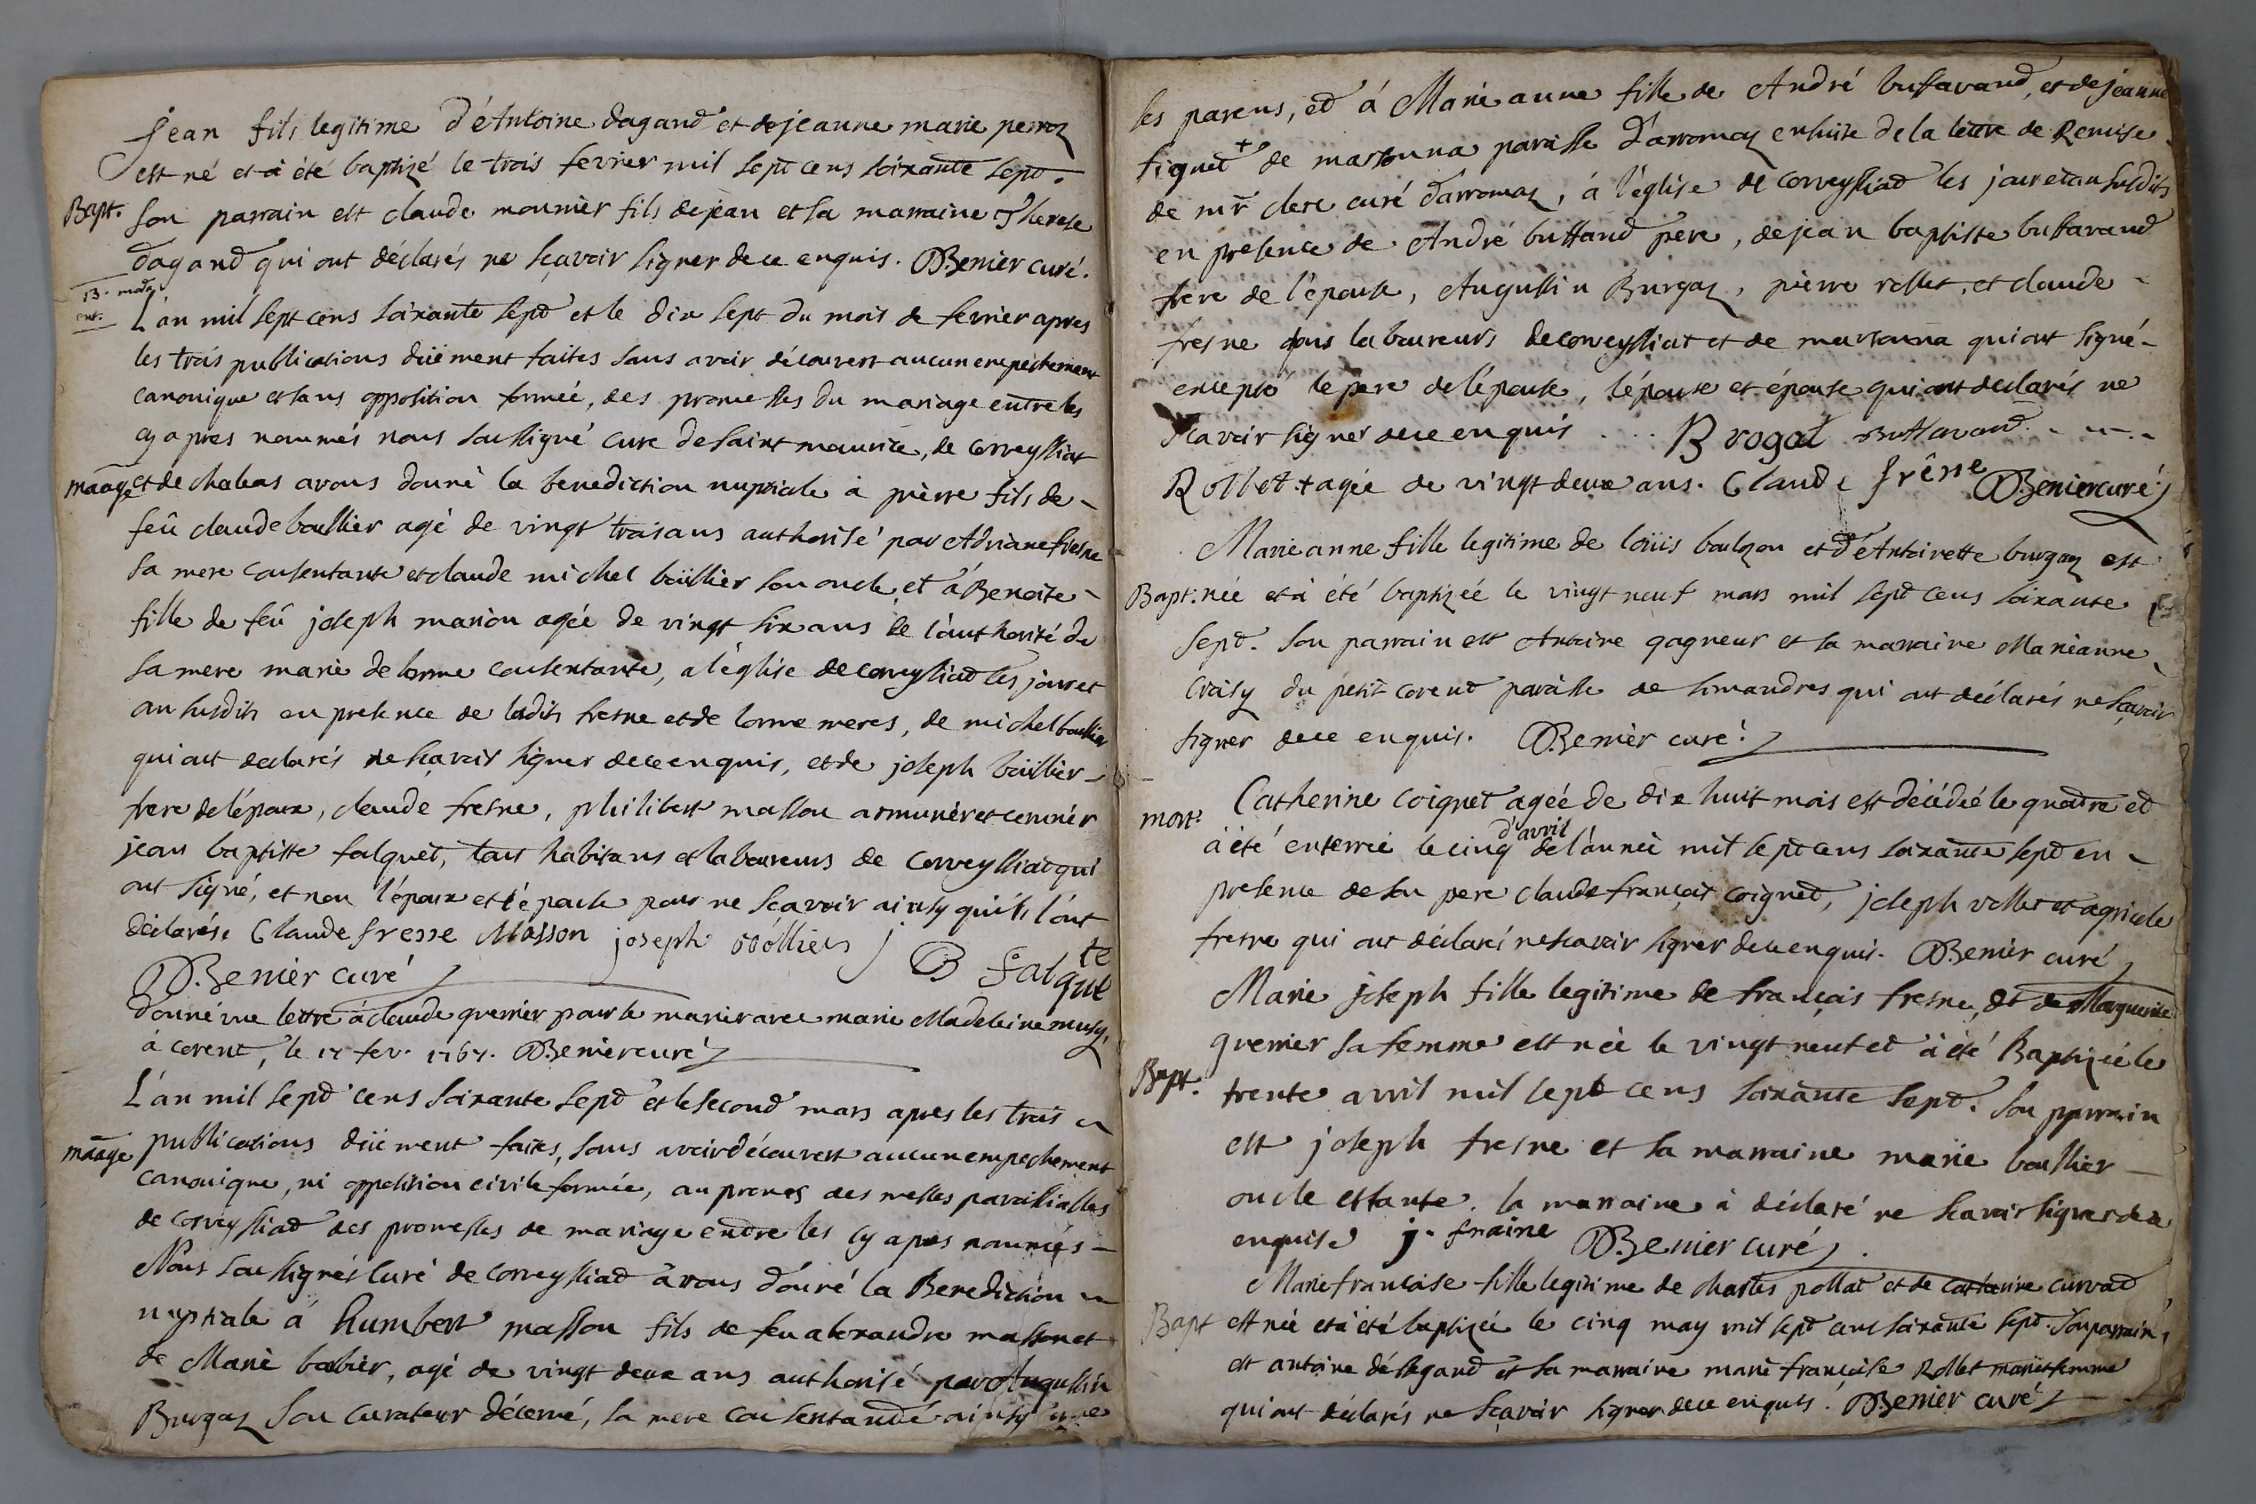 Jean fils legitime d'Antoine dagand et de jeanne marie perroz
est né et à été baptizé le trois fevrier mil sept cens soixante sept.
Bapt. son parrain est claude mounier fils de jean et sa marraine Therese
dagand qui ont déclarés ne sçavoir signer de ce enquis. Benier curé.
L'an mil sept cens soixante sept et le dix sept du mois de fevrier apres
les trois publications düement faites sans avoir découvert aucun empechement
canonique et sans opposition formée, des promesses du mariage entre les
cy apres nommés nous soussigné curé de saint maurice, de corveyssiat
maage et de chaleas avons donné la benediction nuptiale à pierre fils de
feû claude boullier agé de vingt trois ans authorisé par Adriane fresne
sa mere consentante et claude michel boüllier son oncle, et à Benoite
fille de feû joseph marion agée de vingt six ans de l'authorité de
sa mere marie delorme consentante, a l'église de corveyssiad les jour et
an susdits en presence de ladits fresne et delorme meres, de michel boullier
qui ont declarés ne sçavoir signer de ce enquis, et de joseph boüllier
frere de l'époux, claude fresne, philibert masson armurier et
jean baptiste falquet, tous habitans et laboureurs de corveyssiad qui
ont signé, et non l'époux et l'épouse pour ne sçavoir ainsy qu'ils l'ont
déclarés. Claude fresne Masson joseph Bolliers j B falquet
Benier curé
donné une lettre à claude grenier pour le marier avec marie Madeleine musy,
à corent, le 17 fev. 1767. Benier curé
L'an mil sept cens soixante sept et le second mars apres les trois
maage publications düement faites, sans avoir découvert aucun empechement
canonique, ni opposition civile formée, au prones des messes paroissialles
de corveyssiad des promesses de mariage entre les cy apres nommés
Nous soussignés curé de corveyssiad avons donné la Benediction
nuptiale à humbert masson fils de feu alexandre masson et
de Marie bobier, agé de vingt deux ans authorisé par Augustin
Burgaz son curateur décerné, sa mere consentande ainsy que
les parens, et à Marie anne fille de André buffavand, et de jeanne
siquet + de marsonna paroisse d'arromaz ensuite de la lettre de Remise
de mr clerc curé d'arromaz, à l'église de corveyssiad les jour et an susdits
en presence de André buffand pere, de jean baptiste buffavand
frere de l'épouse, Augustin Burgaz, pierre rollet, et claude
fresne tous laboureurs de corveyssiat et de marsonna qui ont signé
excepté le pere de l'épouse, l'époux et épouse qui ont declarés ne
sçavoir signer de ce enquis . . . Brogat Buffavand
Rollet + agée de vingt deux ans. Claude frêsne Benier curé
Marie anne fille legitime de loüis boulzon et d'Antoinette burgaz est
Bapt. née et à été baptizée le vingt neuf mars mil sept cens soixante
sept. son parrain est Antoine gagneur et sa marraine Marianne
Croisy du petit corent paroisse de simandres qui ont déclarés ne sçavoir
signer de ce enquis. Benier curé
Catherine coignet agée de dix huit mois est décédée le quatre et
mort. à été enterrée le cinq d'avril de l'année mil sept cens soixante sept en
presence de son pere claude françois coignet, joseph rollet et agricole
fresne qui ont déclaré ne sçavoir signer de ce enquis. Benier curé
Marie joseph fille legitime de françois fresne, et de Marguerite
grenier sa femme est née le vingt neuf et à été Baptizée le
Bapt. trente avril mil sept cens soixante sept. son parrain
est joseph fresne et sa marraine marie boullier
oncle et tante. la marraine à déclaré ne sçavoir signer de ce
enquise j. fraine Benier curé.
Marie francoise fille legitime de charles pollat et de catherine curvad
Bapt est née et à été baptizée le cinq may mil sept cens soixante sept. son parrain
est antoine déssegand et sa marraine marie françoise Rollet mari et femme
qui ont déclarés ne sçavoir signer de ce enquis. Benier curé